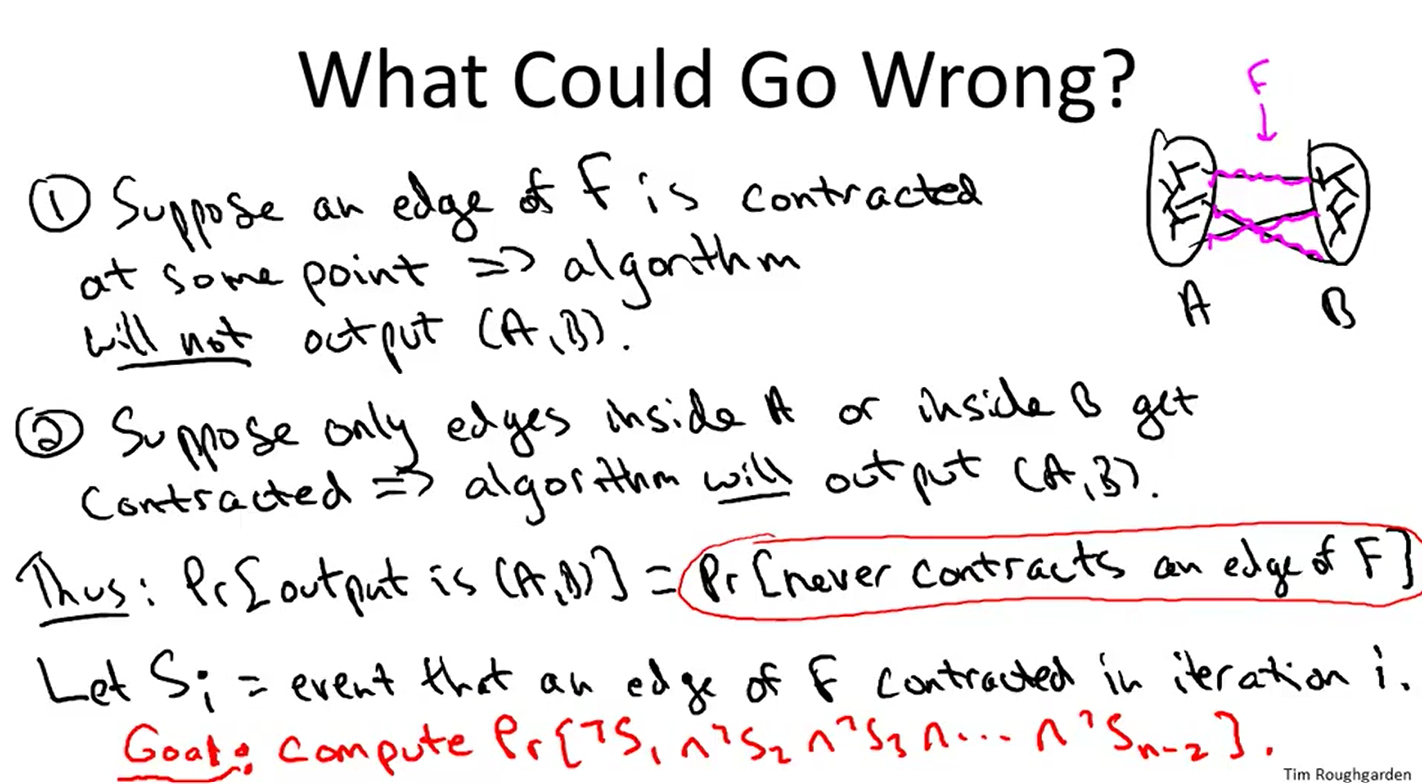 What Could Go Wrong?
F
① Suppose an edge of F is contracted
at some point => algorithm
will not output (A,B).
A B
② Suppose only edges inside A or inside B get
contracted => algorithm will output (A,B).
Thus: Pr[output is (A,B)] = Pr[never contracts an edge of F]
Let Sᵢ = event that an edge of F contracted in iteration i.
Goal: compute Pr[¬S₁ ∩ ¬S₂ ∩ ¬S₃ ∩ ... ∩ ¬Sₙ₋₂].
Tim Roughgarden